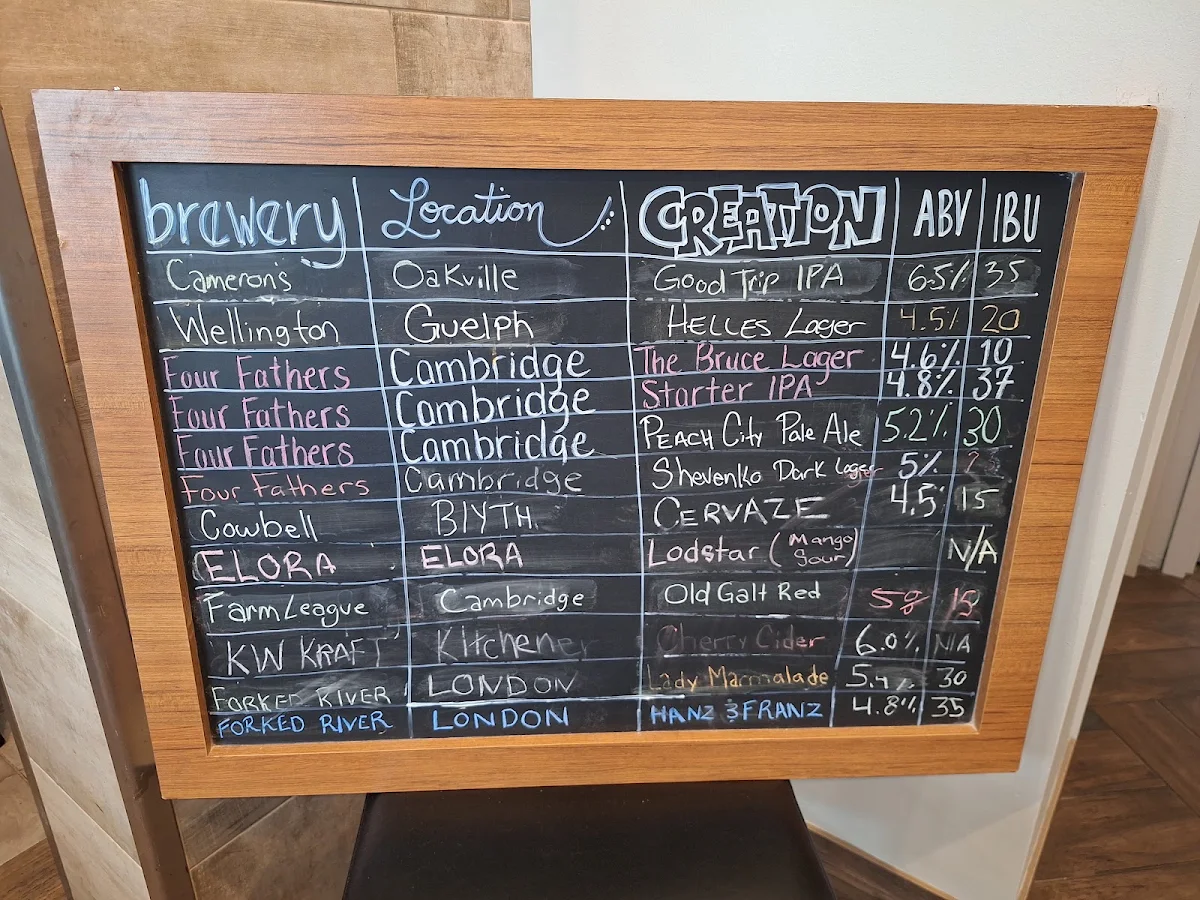 brewery Location CREATION ABV IBU
Cameron's Oakville Good Trip IPA 6.5% 35
Wellington Guelph HELLES Lager 4.5% 20
Four Fathers Cambridge The Bruce Lager 4.6% 10
Four Fathers Cambridge Starter IPA 4.8% 37
Four Fathers Cambridge PEACH City Pale Ale 5.2% 30
Four Fathers Cambridge Shevenko Dark Lager 5% ?
Cowbell BlYTH CERVAZE 4.5 15
ELORA ELORA Lodstar (Mango Sour) N/A
Farm League Cambridge Old Galt Red 15
KW KRAFT Kitchener Cherry Cider 6.0% N/A
FORKED RIVER LONDON Lady Marmalade 5.4% 30
FORKED RIVER LONDON HANZ & FRANZ 4.8% 35